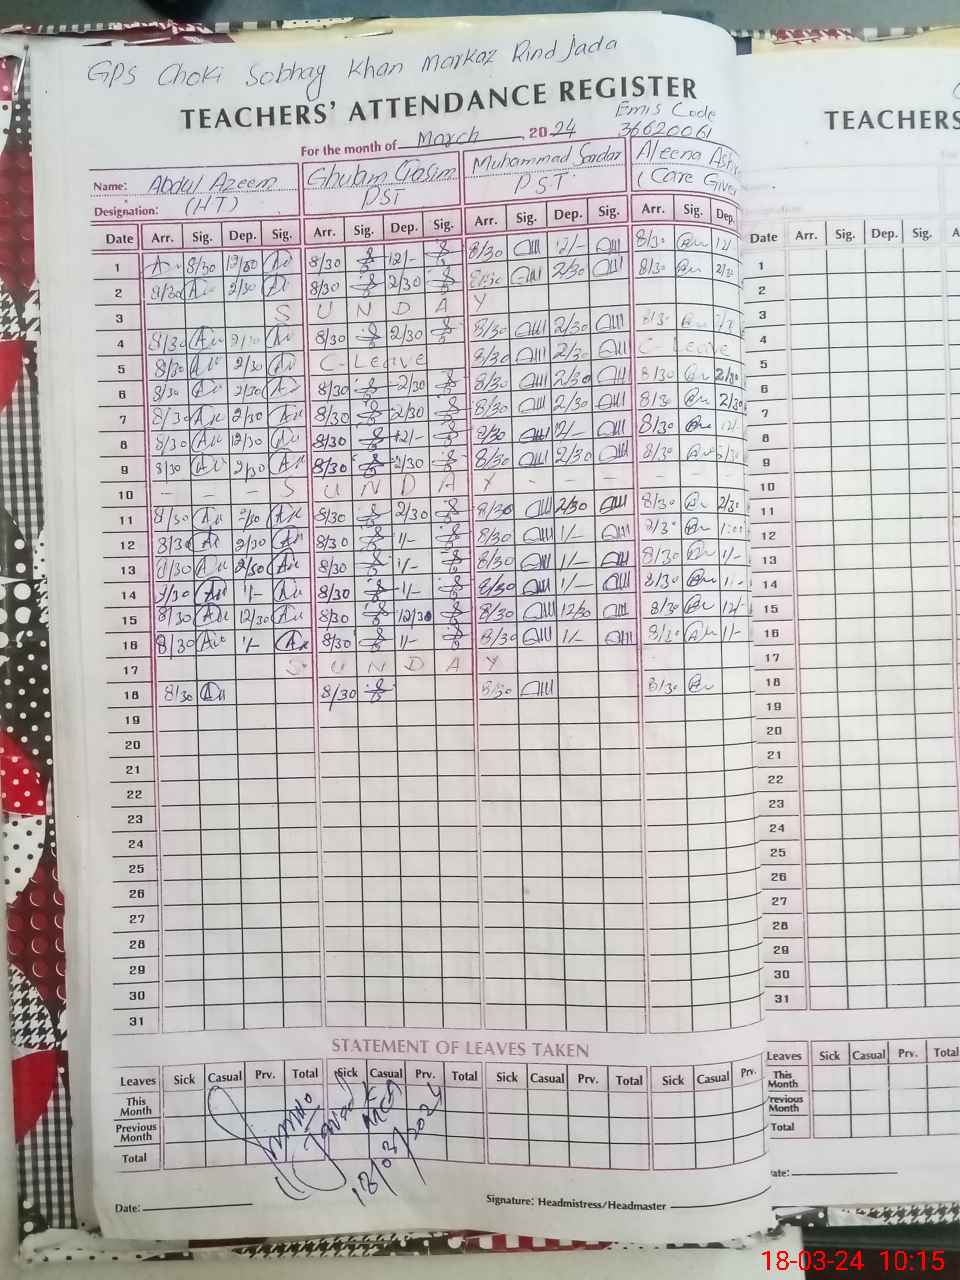 GPS Choki Sobhag Khan Markaz Rind Jada
TEACHERS' ATTENDANCE REGISTER
Emis Code
36620061
For the month of March, 2024
Name: Abdul Azeem Ghulam Qasim Muhammad Sardar Aleena Ash
Designation: (HT) PST P.S.T (Care Giver
Date Arr. Sig. Dep. Sig. Arr. Sig. Dep. Sig. Arr. Sig. Dep. Sig. Arr. Sig. Dep.
1 8/30 8/30 12/- 8/30 12/- 8/30 12/
2 8/30 2/30 8/30 2/30 2/30 8/30 2/30
3 S U N D A Y
4 8/30 2/30 8/30 2/30 8/30 2/30 8/30
5 8/30 2/30 C-Leave 8/30 2/30 C-Leave
6 8/30 2/30 8/30 2/30 8/30 2/30 8/30 2/30
7 8/30 2/30 8/30 2/30 8/30 2/30 8/30 2/30
8 8/30 12/30 8/30 12/- 8/30 12/- 8/30 12/-
9 8/30 2/30 8/30 2/30 8/30 2/30 8/30
10 - - - S U N D A Y - - - -
11 8/30 2/30 8/30 2/30 8/30 2/30 8/30 2/30
12 8/30 2/30 8/30 1/- 8/30 1/- 1:00
13 8/30 2/30 8/30 1/- 8/30 1/- 8/30 1/-
14 1/- 8/30 1/- 8/30 1/- 8/30 1/-
15 8/30 12/30 8/30 12/30 8/30 12/30 8/30 12/-
16 8/30 1/- 8/30 1/- 8/30 1/- 8/30 1/-
17 S U N D A Y
18 8/30 8/30 8/30 8/30
19
20
21
22
23
24
25
26
27
28
29
30
31
STATEMENT OF LEAVES TAKEN
Leaves Sick Casual Prv. Total Sick Casual Prv. Total Sick Casual Prv. Total Sick Casual Prv.
This Month
Previous Month
Total
Javed
MEA
18/03/2024
Date:
Signature: Headmistress/Headmaster
TEACHERS
Date Arr. Sig. Dep. Sig. A
1
2
3
4
5
6
7
8
9
10
11
12
13
14
15
16
17
18
19
20
21
22
23
24
25
26
27
28
29
30
31
Leaves Sick Casual Prv. Total
This Month
Previous Month
Total
ate:
18-03-24 10:15